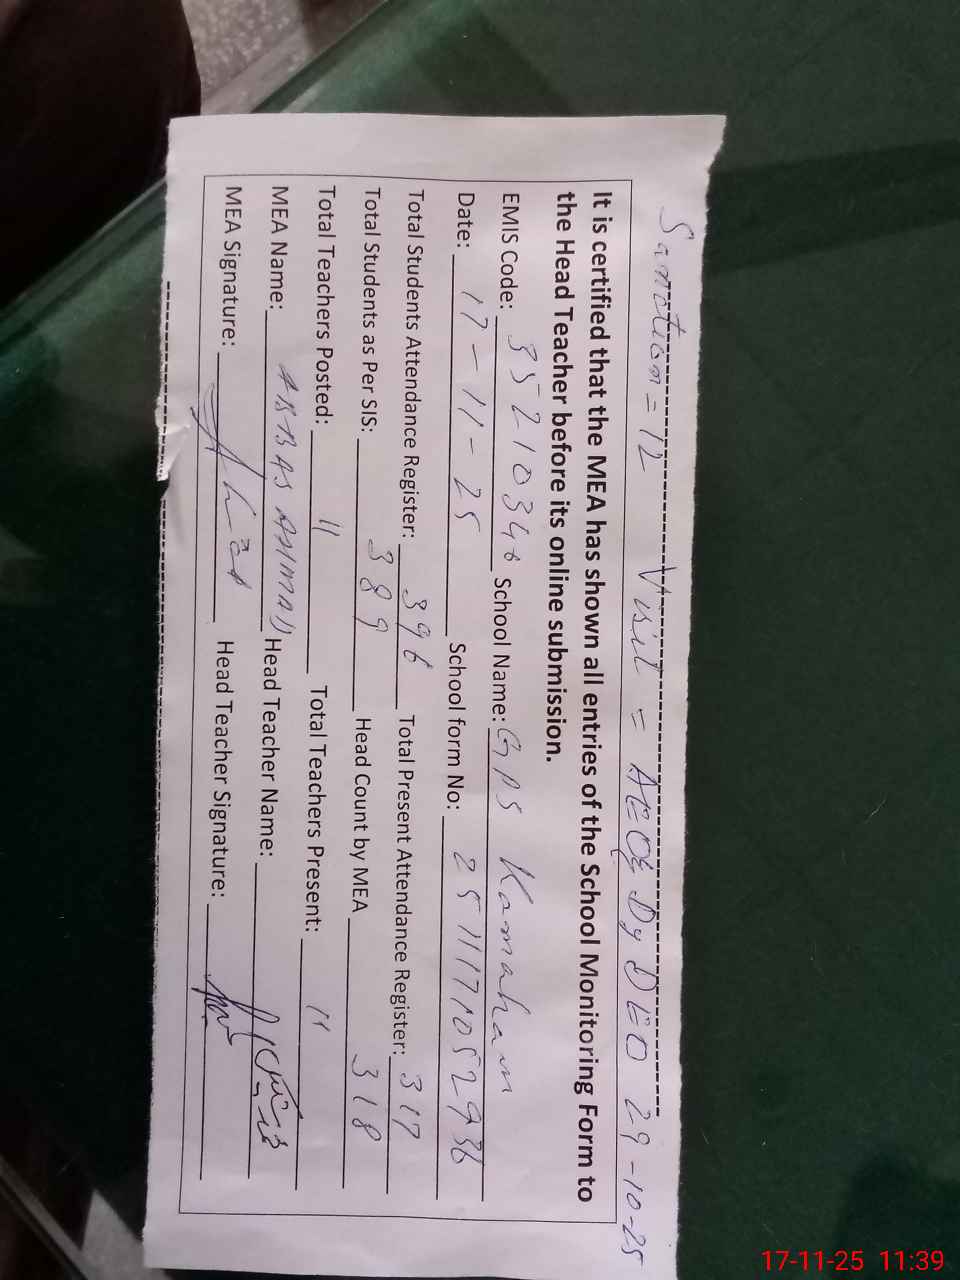 Sanction = 12 Visit = AEO & Dy DEO 29-10-25
It is certified that the MEA has shown all entries of the School Monitoring Form to
the Head Teacher before its online submission.
EMIS Code: 35210346 School Name: GPS Kamahan
Date: 17-11-25 School form No: 2511171052936
Total Students Attendance Register: 396 Total Present Attendance Register: 317
Total Students as Per SIS: 389 Head Count by MEA 318
Total Teachers Posted: 11 Total Teachers Present: 11
MEA Name: ABBAS Head Teacher Name:
MEA Signature: Head Teacher Signature:
17-11-25 11:39